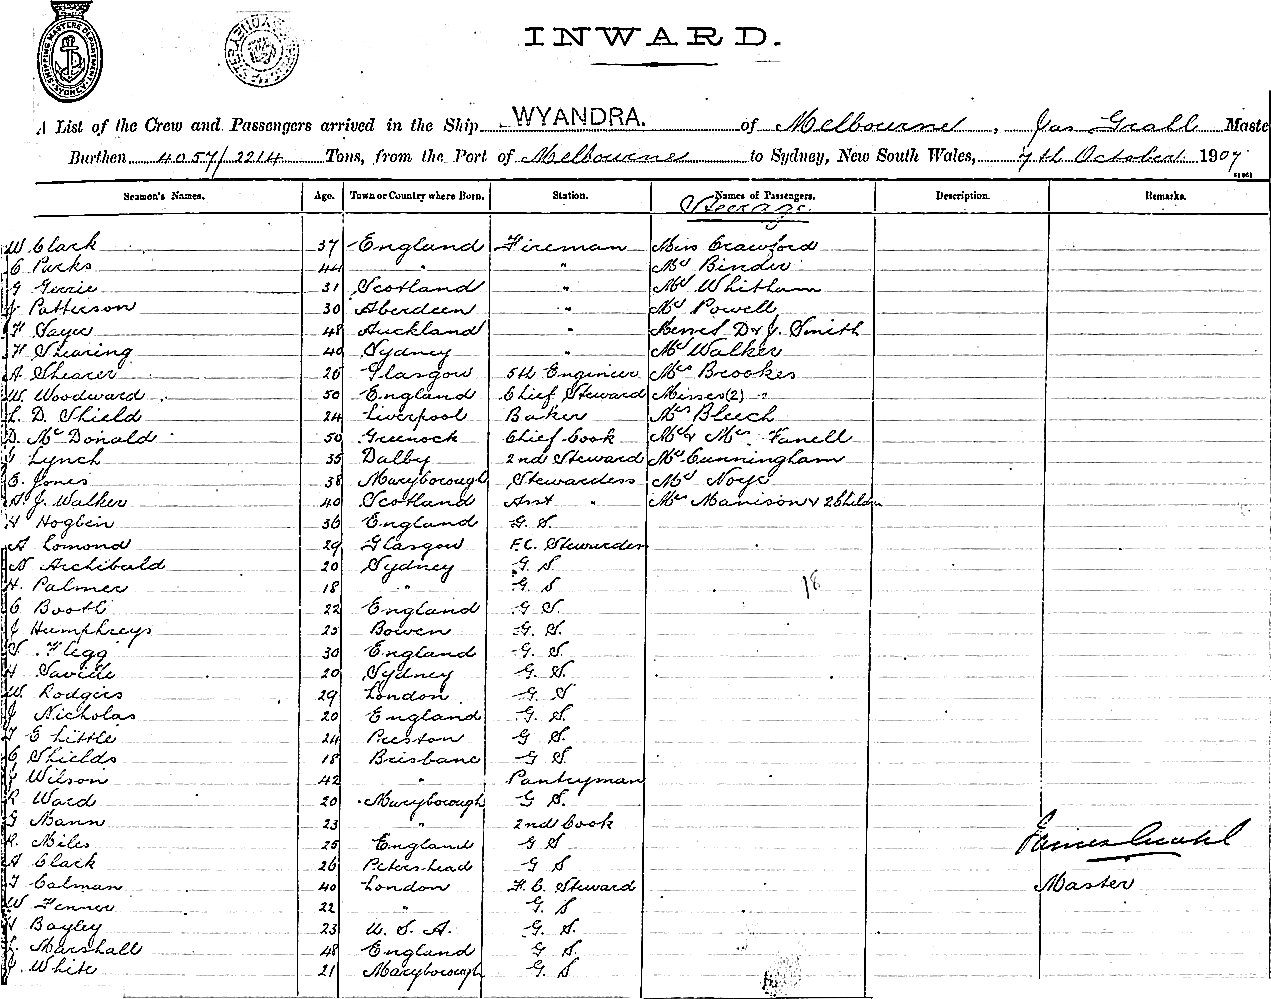 SHIPPING MASTERS DEPARTMENT SYDNEY
INWARD.
A List of the Crew and Passengers arrived in the Ship WYANDRA. of Melbourne, Jas Grahl Maste
Burthen 4057/2214 Tons, from the Port of Melbourne to Sydney, New South Wales, 7th October 1907
Seamen's Names. Age. Town or Country where Born. Station. Names of Passengers. Description. Remarks.
Steerage
W. Clark 37 England Fireman Miss Crawford
C Parks 44 " " Mr Binder
G Gerrie 31 Scotland " Mr Whitham
J Patterson 30 Aberdeen " Mr Powell
F Sayer 48 Auckland " Messrs D & J. Smith
H Shearing 40 Sydney " Mr Walker
A Shearer 26 Glasgow 5th Engineer Mrs Brookes
W. Woodward 50 England Chief Steward Misses (2) "
L. D. Shield 24 Liverpool Baker Mrs Bleech
D. McDonald 50 Greenock Chief Cook Mr & Mrs Fanell
Lynch 35 Dalby 2nd Steward Mr Cunningham
E. Jones 38 Maryborough Stewardess Mr Noye
A. J. Walker 40 Scotland Asst " Mrs Manison & 2 Childn
H Hogbin 36 England G. S.
A Lomond 29 Glasgow F.C. Stewardess
N Archibald 20 Sydney G S
H. Palmer 18 " G. S 18
C Booth 22 England G S.
J Humphreys 25 Bowen G. S.
S. Flegg 30 England G. S.
H Saville 20 Sydney G. S.
W. Rodgers 29 London G S
J Nicholas 20 England G. S.
T E Little 24 Preston G S.
C Shields 18 Brisbane G S
J Wilson 42 " Pantryman
R Ward 20 Maryborough G S.
G Mann 23 " 2nd Cook
R. Miles 25 England G S
A Clark 26 Peterhead G S
James Grahl
T Colman 40 London F. C. Steward Master
W Fenner 22 " G. S
H Bayley 23 U. S. A. G. S.
L. Marshall 48 England G S.
J. White 21 Maryborough G. S